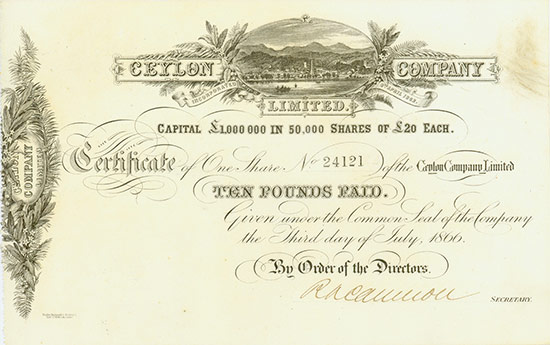 CEYLON COMPANY
INCORPORATED
LIMITED.
CAPITAL £1,000,000 IN 50,000 SHARES OF £20 EACH.
Certificate of One Share No 24121 of the Ceylon Company Limited
TEN POUNDS PAID.
Given under the Common Seal of the Company
the Third day of July, 1866.
By Order of the Directors.
SECRETARY.
CEYLON
COMPANY
LIMITED